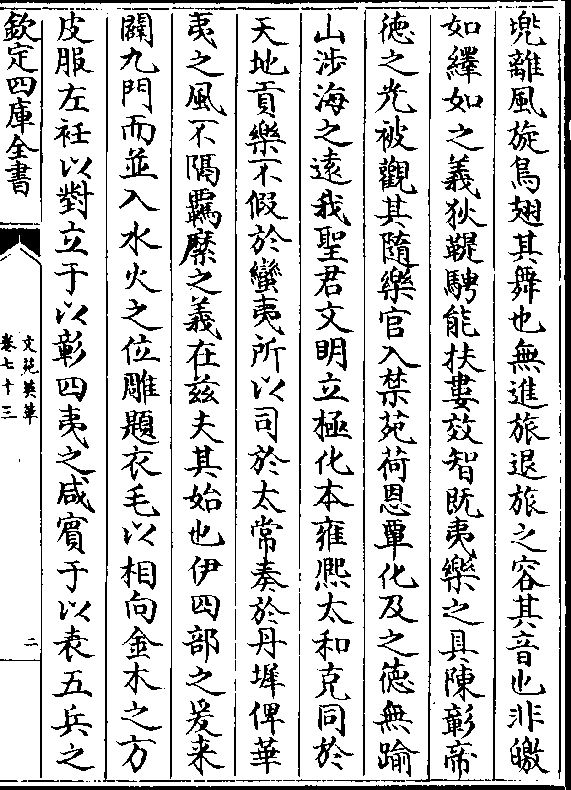 兠離風旋鳥翅其舞也無進旅退旅之容其音也非皦
如繹如之義狄鞮騁能扶婁效智旣夷樂之具陳彰帝
徳之光被觀其隨樂官入禁苑荷恩覃化及之徳無踰
山渉海之逺我聖君文明立極化本雍熙太和克同於
天地貢樂不假於蠻夷所以司於太常奏於丹墀俾華
夷之風不隔羈縻之義在兹夫其始也伊四部之爰来
闢九門而並入水火之位雕題衣毛以相向金木之方
皮服左衽以對立于以彰四夷之咸賓于以表五兵之
欽定四庫全書
文苑英華
卷七十三
二